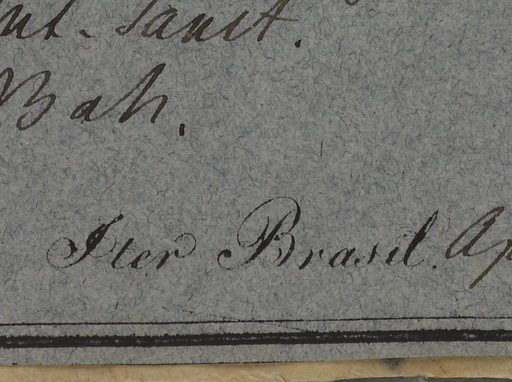 int. Sanct.
Bah.
Iter Brasil. Ap